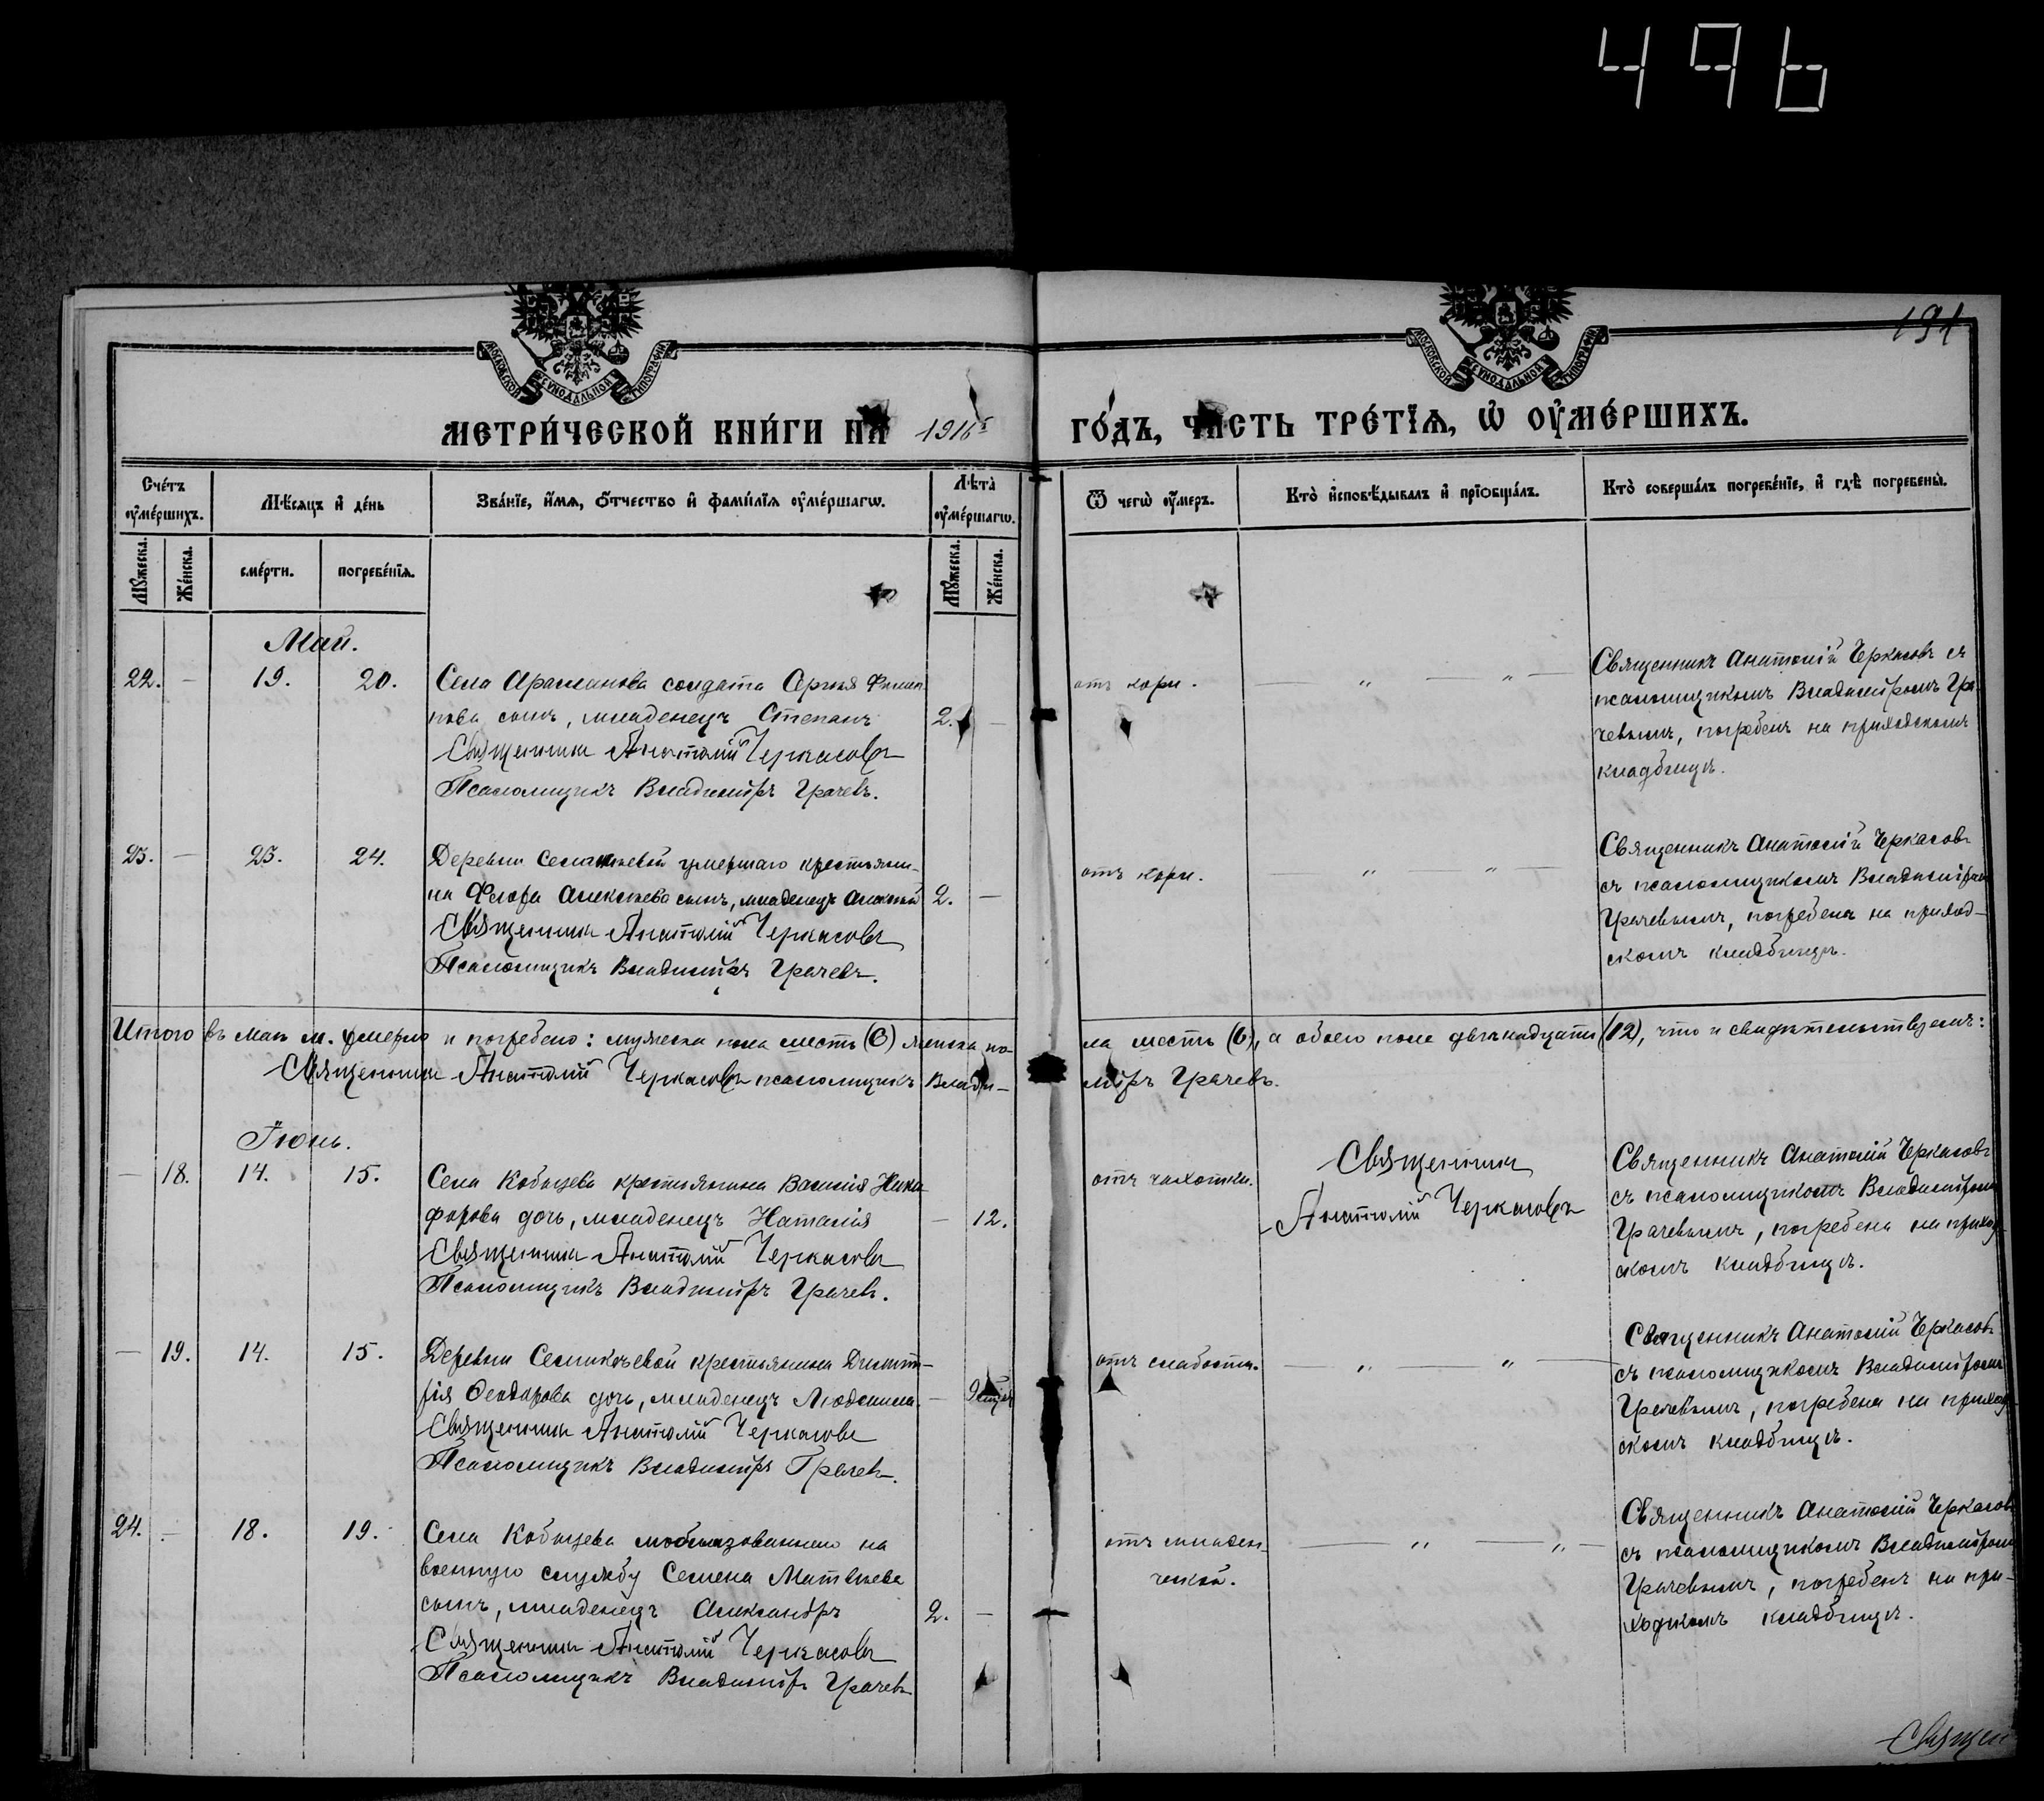 496
191
МОСКОВСКОЙ СѴНОДАЛЬНОЙ ТИПОГРАФІИ
МОСКОВСКОЙ СѴНОДАЛЬНОЙ ТИПОГРАФІИ
МЕТРИ́ЧЕСКОЙ КНИ́ГИ НА 1916 ГО́ДЪ, ЧАСТЬ ТРЕ́ТЇѦ, Ѡ҆ ОУ҆МЕ́РШИХЪ.
Сче́тъ оу҆ме́ршихъ.
Мѣ́сѧцъ и҆ де́нь
Зва́нїе, и҆́мѧ, ѻ҆́тчество и҆ фами́лїѧ оу҆ме́ршагѡ.
Лѣ́та оу҆ме́ршагѡ.
Ѿ чегѡ̀ оу҆́меръ.
Кто̀ и҆сповѣ́дывалъ и҆ прїѻбща́лъ.
Кто̀ соверша́лъ погребе́нїе, и҆ гдѣ̀ погребены̀.
Мꙋ́жеска.
Же́нска.
сме́рти.
погребе́нїѧ.
Мꙋ́жеска.
Же́нска.
Май.
22. — 19. 20.
Села Арасланова солдата Сергія Филип
пова сынъ, младенецъ Степанъ 2. —
Священникъ Анатолій Черкасовъ
Псаломщикъ Владиміръ Грачевъ.
отъ кори.
— „ — „ —
Священникъ Анатолій Черкасовъ съ
псаломщикомъ Владиміромъ Гра-
чевымъ, погребенъ на приходскомъ
кладбищѣ.
23. — 23. 24.
Деревни умершаго крестьяни-
на Флора Алексѣева сынъ, младенецъ Алексѣй 2. —
Священникъ Анатолій Черкасовъ
Псаломщикъ Владиміръ Грачевъ.
отъ кори.
— „ — „ —
Священникъ Анатолій Черкасовъ
съ псаломщикомъ Владиміромъ
Грачевымъ, погребенъ на приход-
скомъ кладбищѣ.
Итого въ маѣ м. умерло и погребено: мужеска пола шесть (6) женска по-
ла шесть (6), а обоего пола двѣнадцать (12), что и свидѣтельствуемъ:
Священникъ Анатолій Черкасовъ псаломщикъ Влади-
міръ Грачевъ.
Іюнь.
— 18. 14. 15.
Села Кобыцева крестьянина Василія Ники
форова дочь, младенецъ Наталія — 12.
Священникъ Анатолій Черкасовъ
Псаломщикъ Владиміръ Грачевъ.
отъ чахотки.
Священникъ
Анатолій Черкасовъ
Священникъ Анатолій Черкасовъ
съ псаломщикомъ Владиміромъ
Грачевымъ, погребена на приход-
скомъ кладбищѣ.
— 19. 14. 15.
Деревни Семикачевой крестьянина Димит-
рія Ѳеодорова дочь, младенецъ Людмила. —
Священникъ Анатолій Черкасовъ
Псаломщикъ Владиміръ Грачевъ.
отъ слабости.
— „ „ —
Священникъ Анатолій Черкасовъ
съ псаломщикомъ Владиміромъ
Грачевымъ, погребена на приход-
скомъ кладбищѣ.
24. — 18. 19.
Села Кобыцева мобилизованнаго на
военную службу Семена Матвѣева
сынъ, младенецъ Александръ 2. —
Священникъ Анатолій Черкасовъ
Псаломщикъ Владиміръ Грачевъ
отъ младен-
ческой.
— „ — „ —
Священникъ Анатолій Черкасовъ
съ псаломщикомъ Владиміромъ
Грачевымъ, погребенъ на при-
ходскомъ кладбищѣ.
Священ